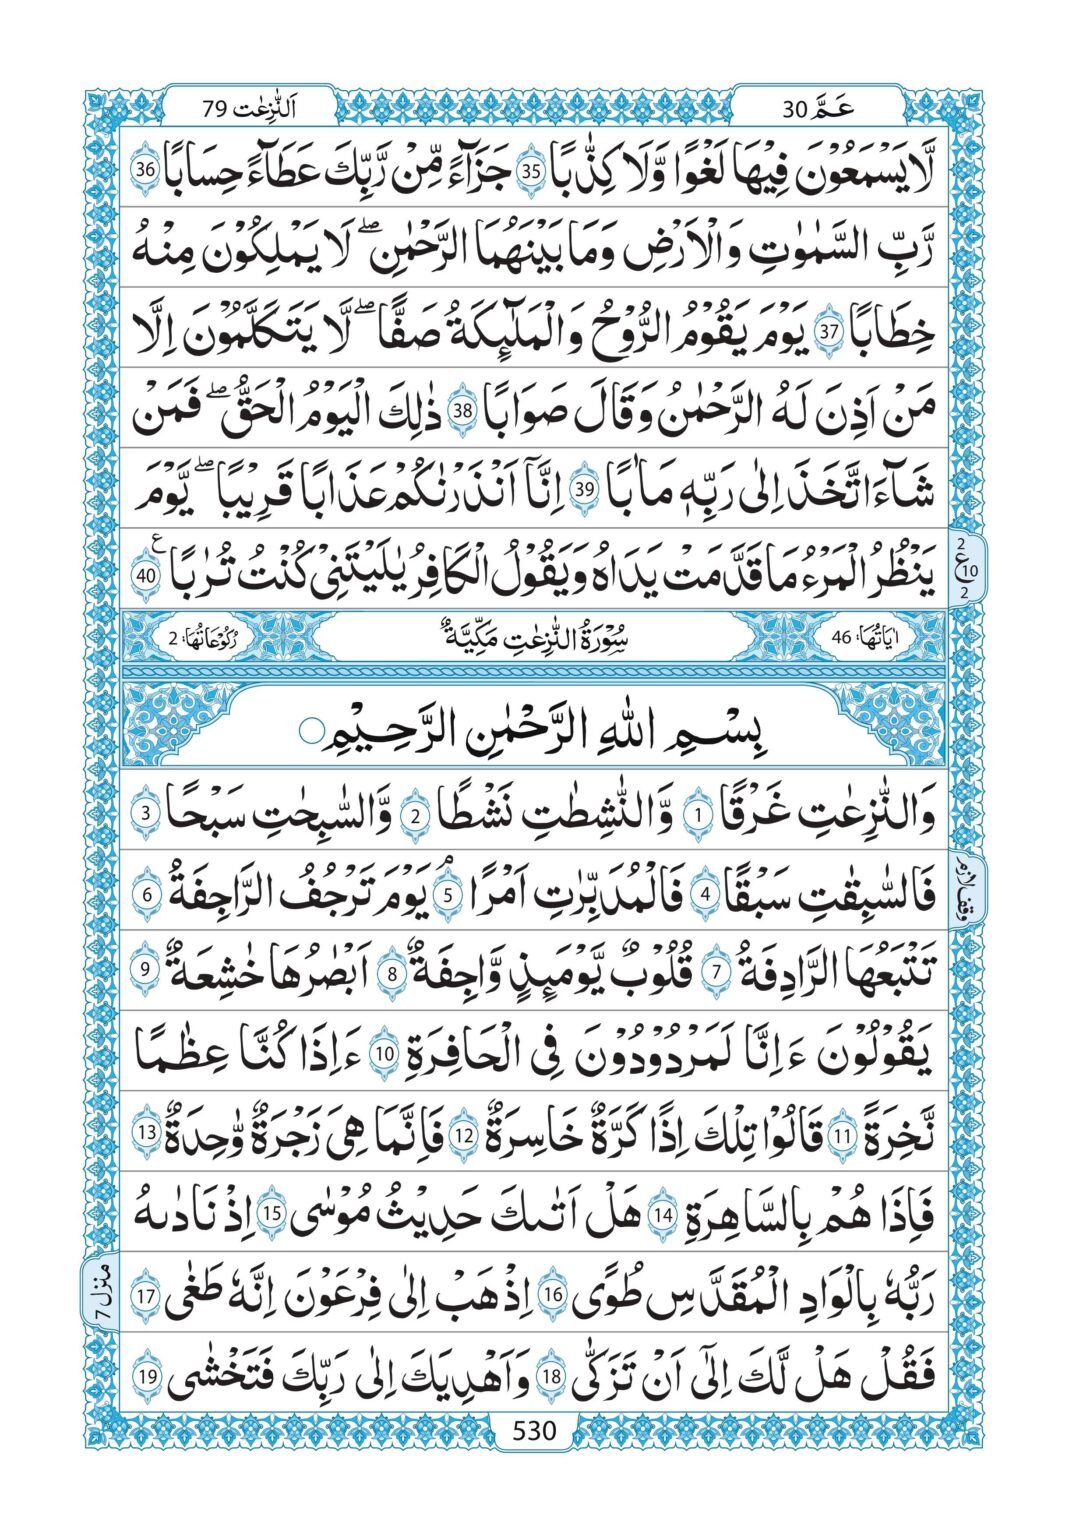 عَمَّ 30
اَلنّٰزِعٰت 79
لَّا يَسْمَعُوْنَ فِيْهَا لَغْوًا وَّلَا كِذّٰبًا 35 جَزَآءً مِّنْ رَّبِّكَ عَطَآءً حِسَابًا 36
رَّبِّ السَّمٰوٰتِ وَالْاَرْضِ وَمَا بَيْنَهُمَا الرَّحْمٰنِ ۖ لَا يَمْلِكُوْنَ مِنْهُ
خِطَابًا 37 يَوْمَ يَقُوْمُ الرُّوْحُ وَالْمَلٰٓئِكَةُ صَفًّا ۖ لَّا يَتَكَلَّمُوْنَ اِلَّا
مَنْ اَذِنَ لَهُ الرَّحْمٰنُ وَقَالَ صَوَابًا 38 ذٰلِكَ الْيَوْمُ الْحَقُّ ۖ فَمَنْ
شَآءَ اتَّخَذَ اِلٰى رَبِّهٖ مَاٰبًا 39 اِنَّآ اَنْذَرْنٰكُمْ عَذَابًا قَرِيْبًا ۖ يَّوْمَ
يَنْظُرُ الْمَرْءُ مَا قَدَّمَتْ يَدَاهُ وَيَقُوْلُ الْكَافِرُ يٰلَيْتَنِىْ كُنْتُ تُرٰبًا ع 40
2 ع 10 2
اٰيَاتُهَا: 46
سُوْرَةُ النّٰزِعٰتِ مَكِّيَّةٌ
رُكُوْعَاتُهَا: 2
بِسْمِ اللّٰهِ الرَّحْمٰنِ الرَّحِيْمِ
وَالنّٰزِعٰتِ غَرْقًا 1 وَّالنّٰشِطٰتِ نَشْطًا 2 وَّالسّٰبِحٰتِ سَبْحًا 3
فَالسّٰبِقٰتِ سَبْقًا 4 فَالْمُدَبِّرٰتِ اَمْرًا ۘ 5 يَوْمَ تَرْجُفُ الرَّاجِفَةُ 6
وقف لازم
تَتْبَعُهَا الرَّادِفَةُ 7 قُلُوْبٌ يَّوْمَئِذٍ وَّاجِفَةٌ 8 اَبْصٰرُهَا خٰشِعَةٌ 9
يَقُوْلُوْنَ ءَاِنَّا لَمَرْدُوْدُوْنَ فِى الْحَافِرَةِ 10 ءَاِذَا كُنَّا عِظٰمًا
نَّخِرَةً 11 قَالُوْا تِلْكَ اِذًا كَرَّةٌ خَاسِرَةٌ 12 فَاِنَّمَا هِىَ زَجْرَةٌ وّٰحِدَةٌ 13
فَاِذَا هُمْ بِالسَّاهِرَةِ 14 هَلْ اَتٰىكَ حَدِيْثُ مُوْسٰى 15 اِذْ نَادٰىهُ
رَبُّهٗ بِالْوَادِ الْمُقَدَّسِ طُوًى 16 اِذْهَبْ اِلٰى فِرْعَوْنَ اِنَّهٗ طَغٰى 17
منزل 7
فَقُلْ هَلْ لَّكَ اِلٰٓى اَنْ تَزَكّٰى 18 وَاَهْدِيَكَ اِلٰى رَبِّكَ فَتَخْشٰى 19
530